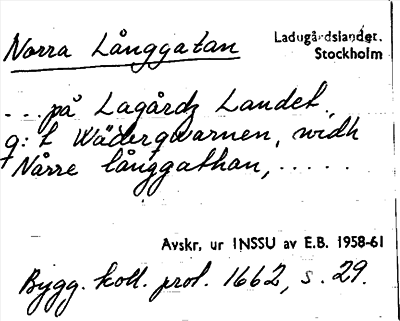 Norra Långgatan
Ladugårdslandet.
Stockholm
... på Lagårdz Landet,
q: t Wäderqwarnen, widh
Nårre långgathan, .....
Avskr. ur INSSU av E.B. 1958-61
Bygg. koll. prol. 1662, s. 29.